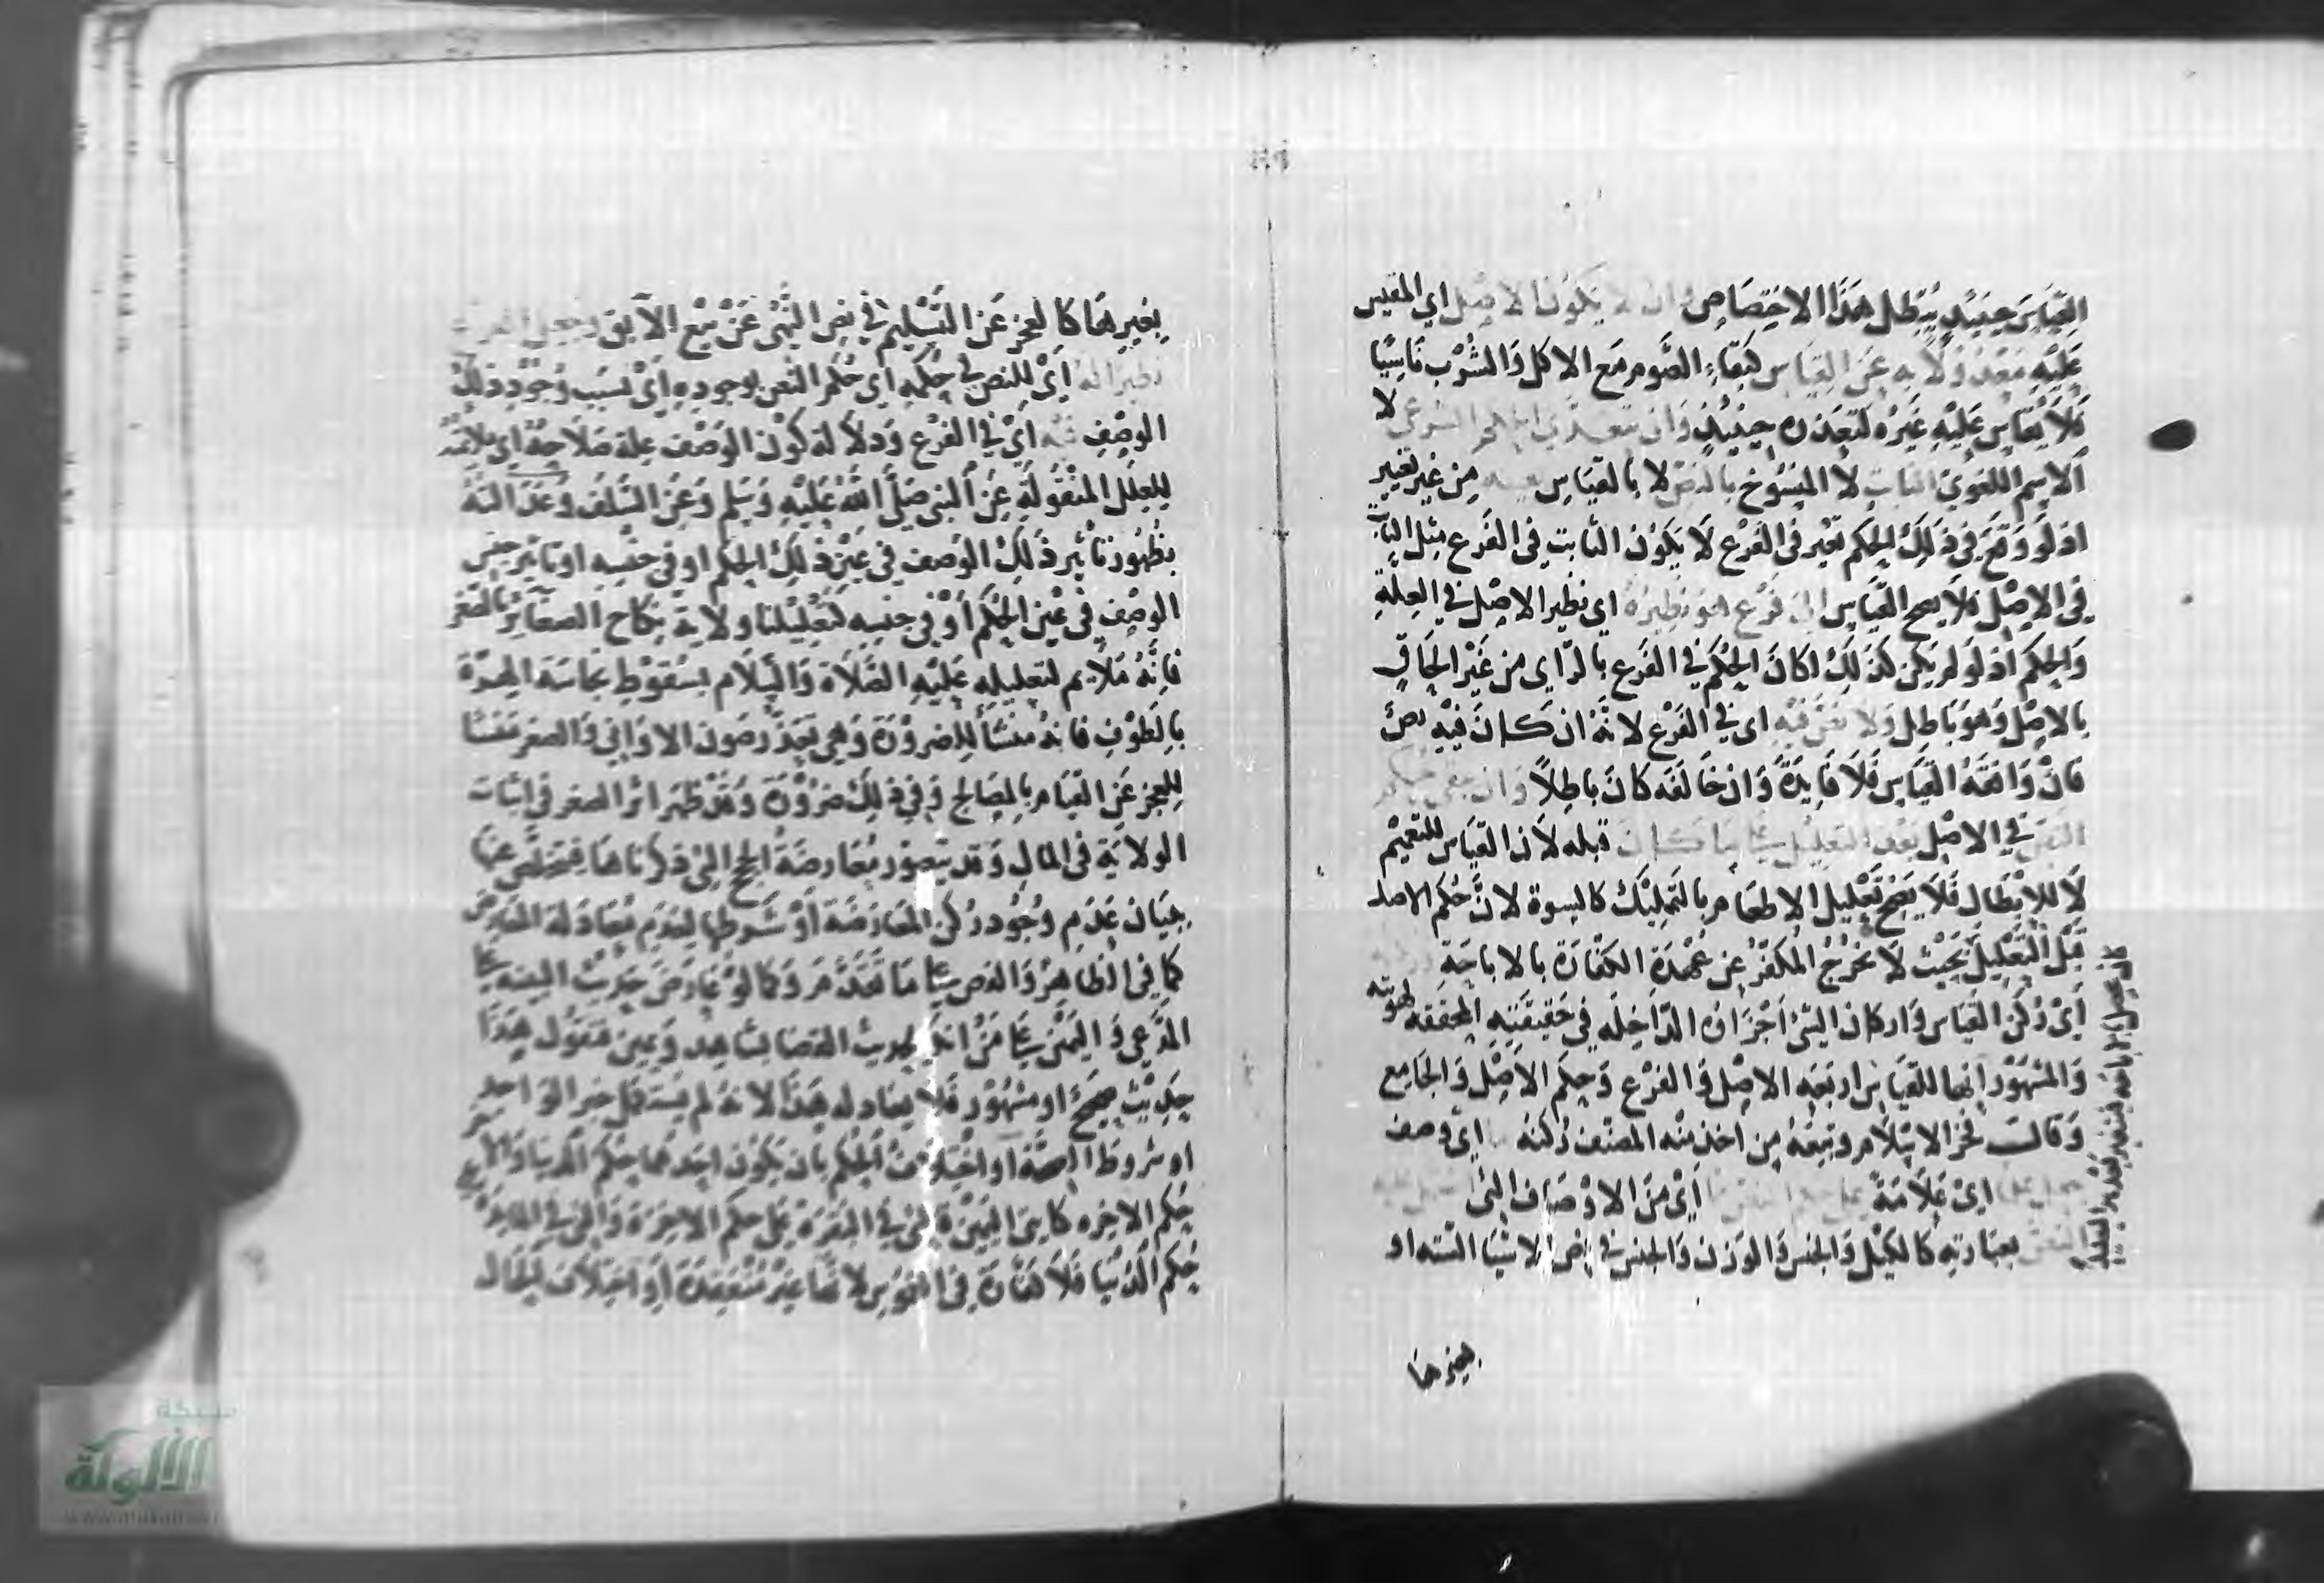 القياس حينئذ يبطل هذا الاختصاص وان لا يكون الاصل اي المقيس
عليه معدولا به عن القياس كبقاء الصوم مع الاكل والشرب ناسيا
فلا يقاس عليه غيره لتعذره حينئذ وان يتعدي الحكم الشرعي لا
الاسم اللغوي الثابت لا المنسوخ بالنص لا بالقياس بعينه من غير تغيير
اذ لو وقع في ذلك الحكم تغير في الفرع لا يكون الثابت في الفرع مثل الثابت
في الاصل فلا يصح القياس الى فرع هو نظيره اي نظير الاصل في العلة
والحكم اذ لو لم يكن كذلك لكان الحكم في الفرع بالراي من غير الحاق
بالاصل وهو باطل ولا نص فيه اي في الفرع لانه ان كان فيه نص
فان وافقه القياس فلا فايدة وان خالفه كان باطلا وان يبقى حكم
النص في الاصل بعد التعليل على ما كان قبله لان القياس للتعميم
لا للابطال فلا يصح تعليل الاطعام بالتمليك كالكسوة لان حكم الاصل
قبل التعليل بحيث لا يخرج المكفر عن عهدة الكفارة بالاباحة وركنه
اي ركن القياس واركان الشئ اجزاؤه الداخله في حقيقته المحققه لهويته
والمشهور انها للقياس اربعه الاصل والفرع وحكم الاصل والجامع
وقال فخر الاسلام وتبعه من اخذ منه المصنف ركنه اي وصف
جعل علما اي علامة على حكم النص مما اي من الاوصاف التي اشتمل عليه
النص بعبارته كالكيل والجنس والوزن والجنس في نص الاشيا السته او
بغيرها
بغيرها كالعجز عن التسليم في نص النهي عن بيع الآبق وجعل الفرع
نظيرا له اي للنص في حكمه اي حكم النص بوجوده اي بسبب وجود ذلك
الوصف فيه اي في الفرع ودلالة كون الوصف علة صلاحه اي ملائمته
للعلل المنقولة عن النبي صلى الله عليه وسلم وعن السلف وعدالته
بظهور تاثير ذلك الوصف في عين ذلك الحكم او في جنسه او تاثير جنس
الوصف في عين الحكم او في جنسه كتعليلنا ولاية نكاح الصغاير بالصغر
فانه ملايم لتعليله عليه الصلاة والسلام بسقوط نجاسة الهرة
بالطوف فانه منشأ للضرورة وهي تعذر صون الاواني والصغر منشا
للعجز عن القيام بالمصالح وفي ذلك ضرورة وقد ظهر اثر الصغر في اثبات
الولاية في المال وقد يتصور معارضة الحجج التي ذكرناها فيتخلص عنها
ببيان عدم وجود ركن المعارضة او شرطها لعدم معادلة المتعارض
كما في الظاهر والنص على ما تقدم وكما لو عارض حديث البينه على
المدعي واليمين على من انكر بحديث القضا بشاهد ويمين فنقول هذا
حديث صحيح او مشهور فلا يعادله هذا لانه لم يستكمل خبر الواحد
او شروط الصحة او اختلاف الحكم بان يكون احدهما حكم الدنيا والآخر
حكم الاخره كايتي اليمين التي في البقرة على حكم الاخرة والتي في المايدة على
حكم الدنيا فلا كفارة في الغموس لانها غير منعقدة او اختلاف الحال